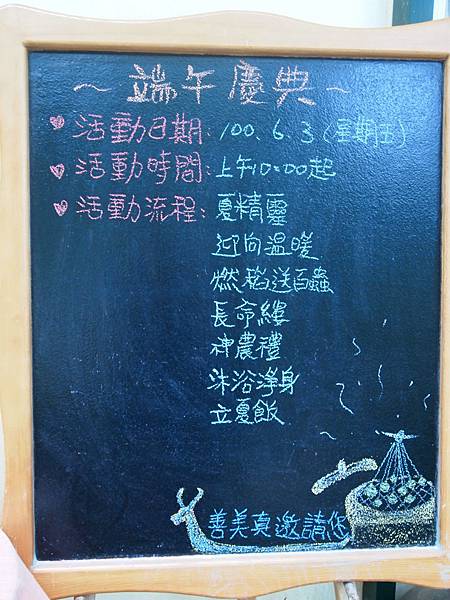 ～端午慶典～
活動日期：100.6.3(星期五)
活動時間：上午10:00起
活動流程：夏精靈
迎向溫暖
燃稻送百蟲
長命縷
神農禮
沐浴淨身
立夏飯
善美真邀請您